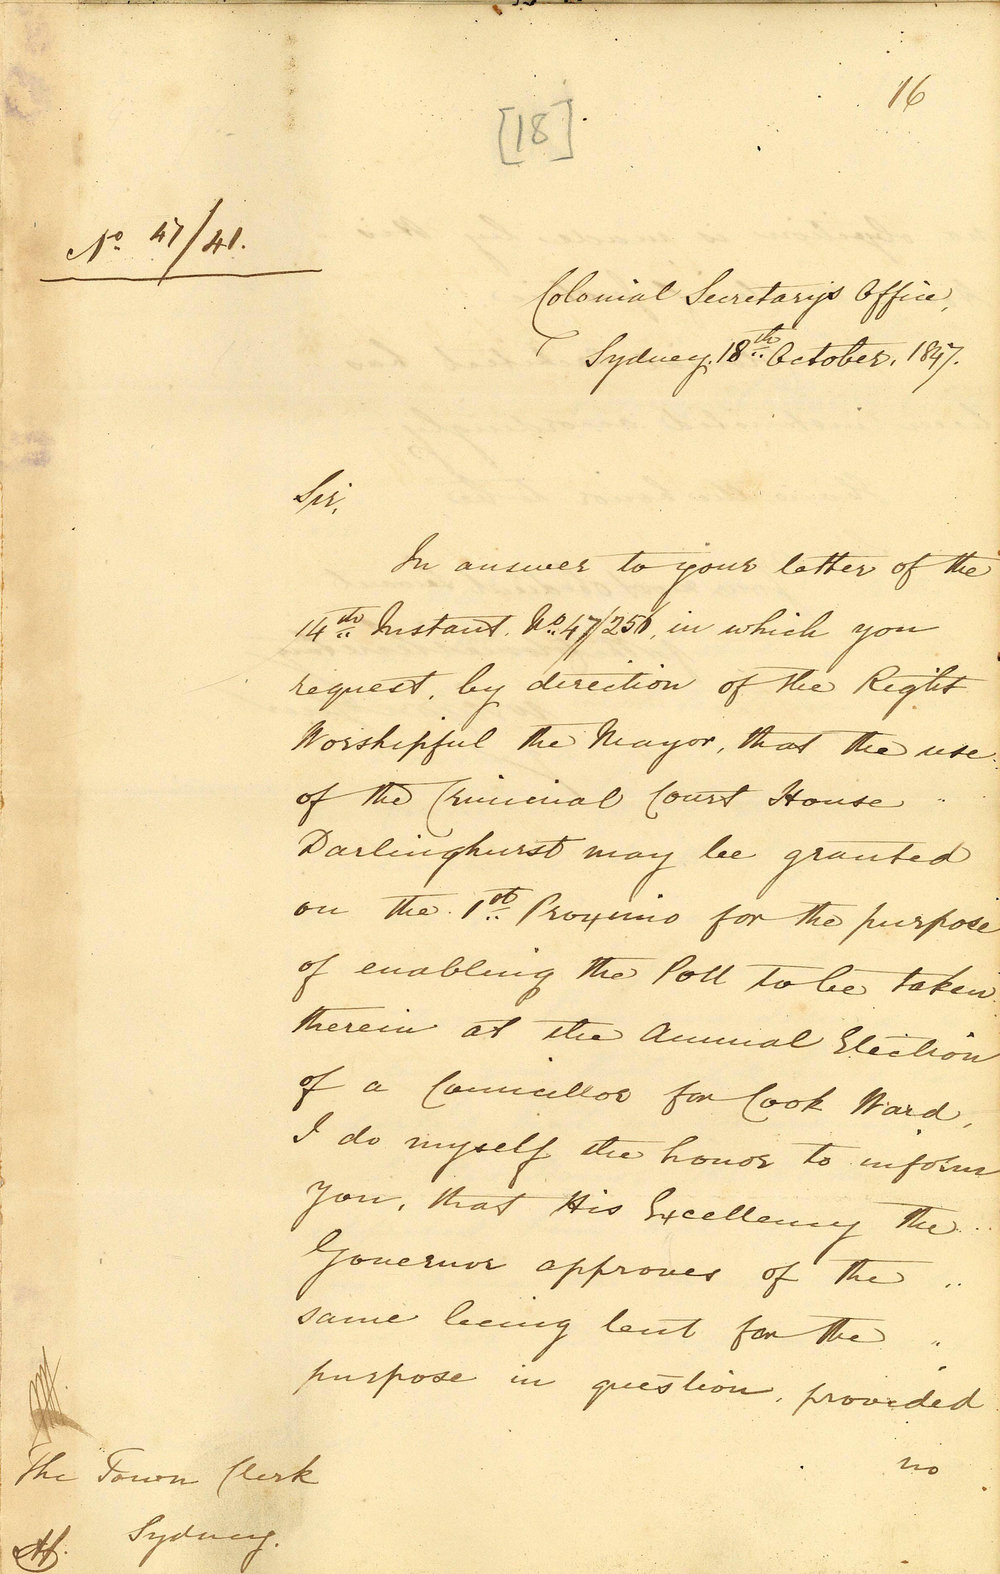 16
[18]
No. 47/41.
Colonial Secretary's Office,
Sydney, 18th October, 1847.
Sir,
In answer to your letter of the
14th Instant. No. 47/251, in which you
request, by direction of the Right
Worshipful the Mayor, that the use
of the Criminal Court House
Darlinghurst may be granted
on the 1st Proximo for the purpose
of enabling the Poll to be taken
therein at the Annual Election
of a Councillor for Cook Ward,
I do myself the honor to inform
you, that His Excellency the
Governor approves of the
same being lent for the
purpose in question, provided
no
The Town Clerk
Sydney.